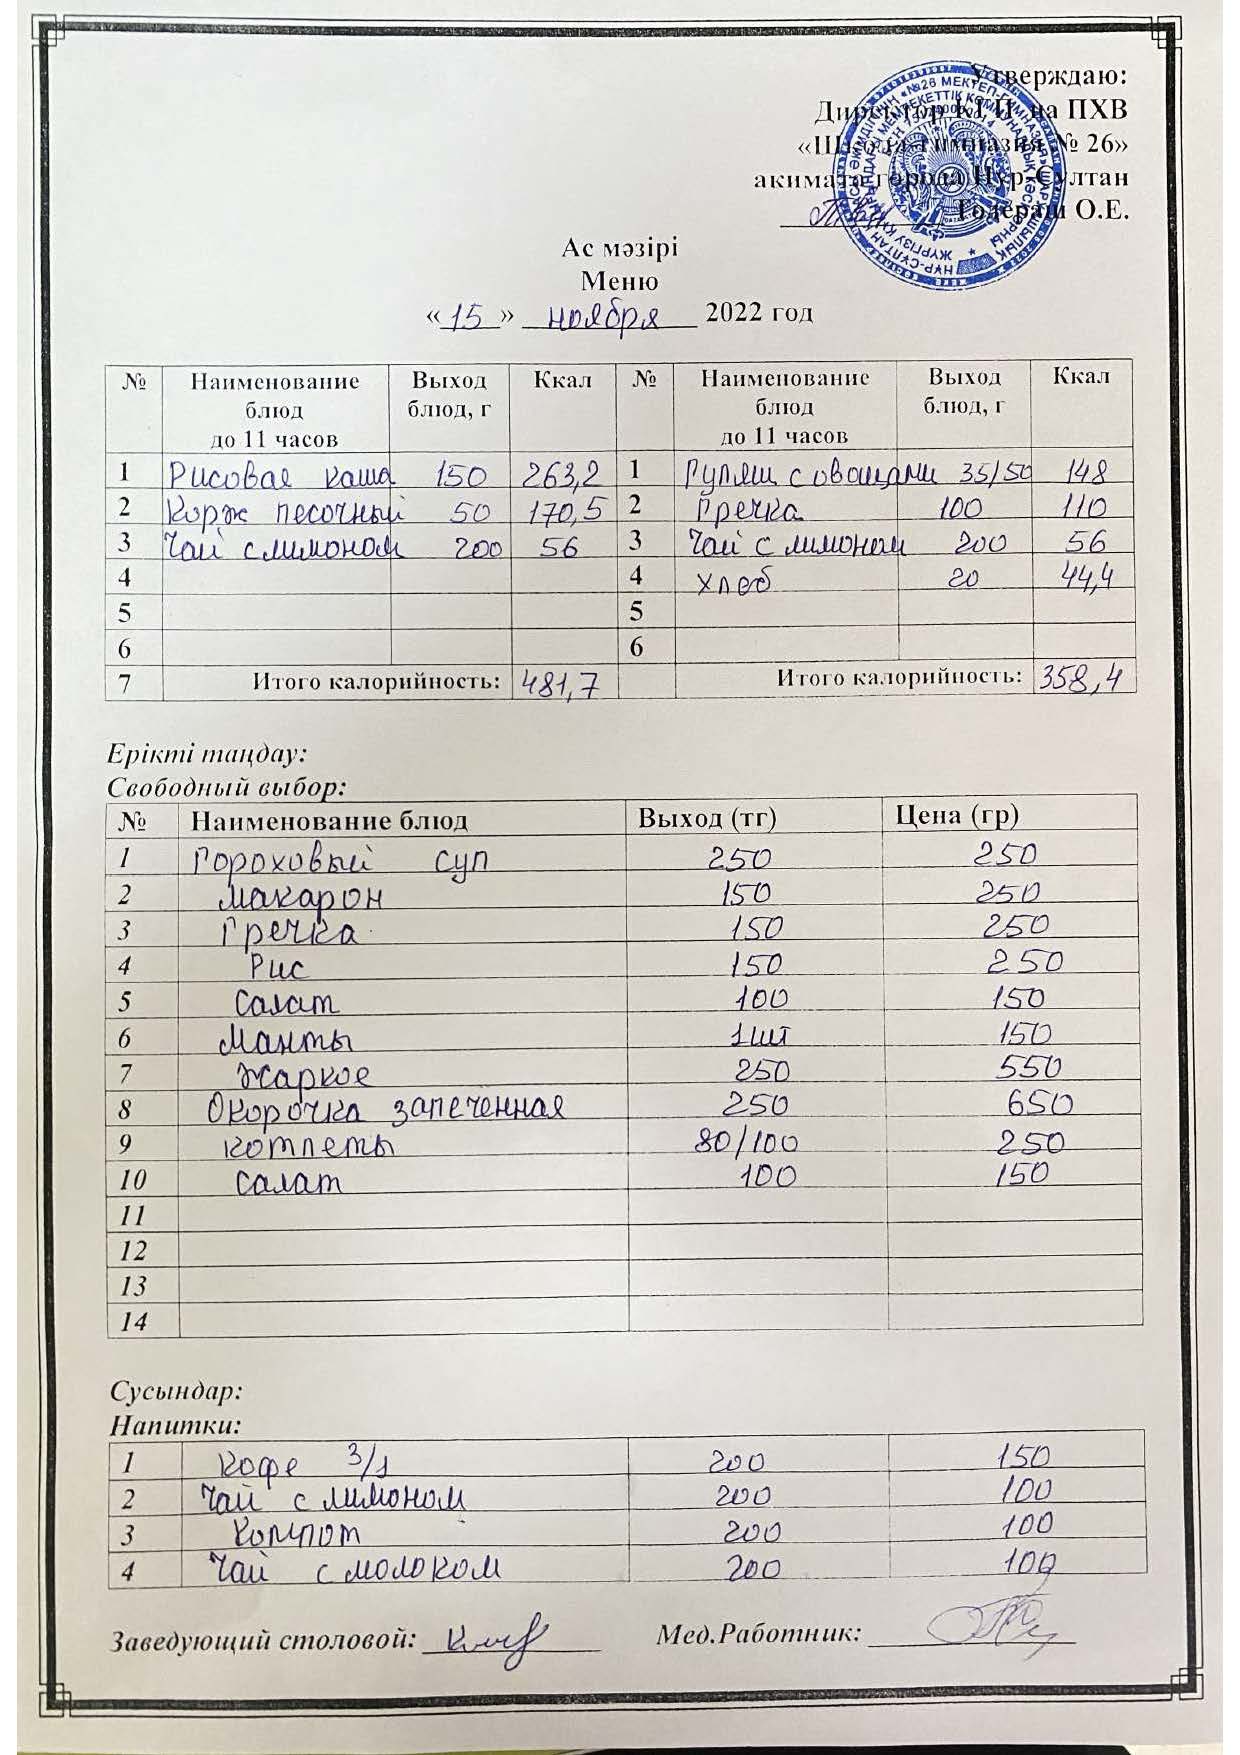 Утверждаю:
Директор на ПХВ
«Школа-гимназия № 26»
акимата города Нур-Султан
Годераш О.Е.
Ас мәзірі
Меню
«15» ноября 2022 год
№ Наименование блюд до 11 часов Выход блюд, г Ккал № Наименование блюд до 11 часов Выход блюд, г Ккал
1 Рисовая каша 150 263,2 1 Гуляш с овощами 35/50 148
2 Корж песочный 50 170,5 2 Гречка 100 110
3 Чай с лимоном 200 56 3 Чай с лимоном 200 56
4 4 хлеб 20 44,4
5 5
6 6
7 Итого калорийность: 481,7 Итого калорийность: 358,4
Ерікті таңдау:
Свободный выбор:
№ Наименование блюд Выход (тг) Цена (гр)
1 Гороховый суп 250 250
2 макарон 150 250
3 Гречка 150 250
4 Рис 150 250
5 Салат 100 150
6 Манты 1шт 150
7 Жаркое 250 550
8 Окорочка запеченная 250 650
9 котлеты 80/100 250
10 салат 100 150
11
12
13
14
Сусындар:
Напитки:
1 Кофе 3/1 200 150
2 Чай с лимоном 200 100
3 Компот 200 100
4 Чай с молоком 200 100
Заведующий столовой: Мед.Работник: